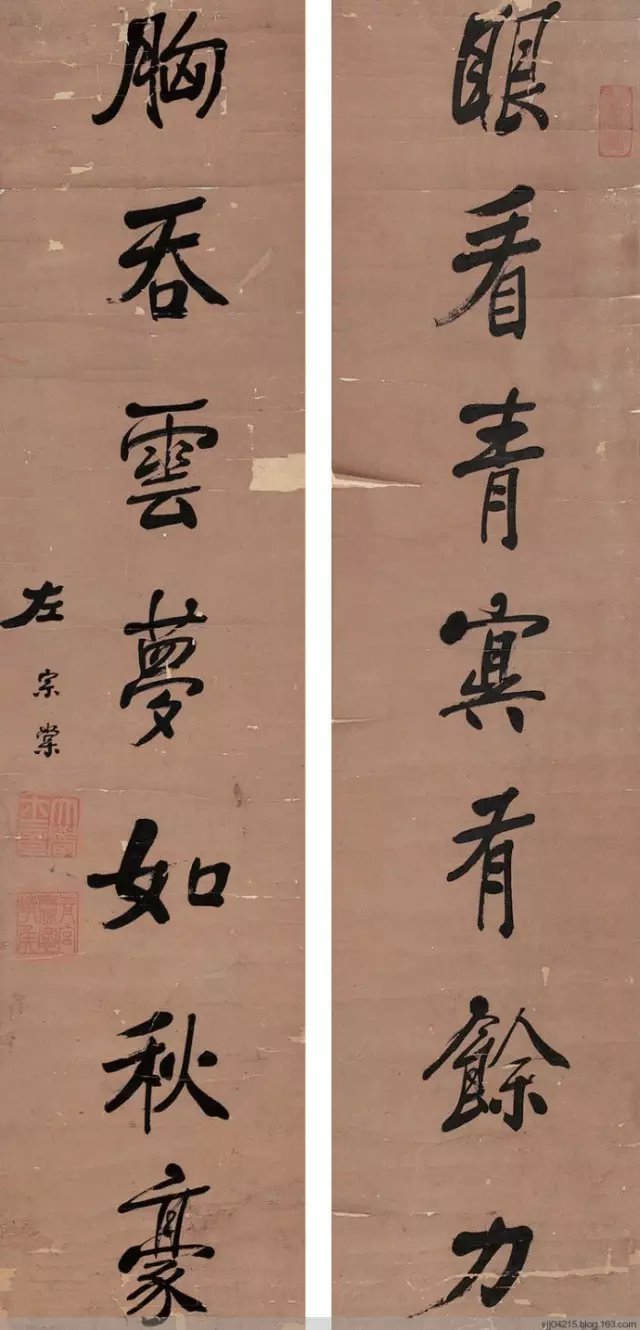 眼看青寞有餘力
胸吞雲夢如秋豪
左宗棠
sjj04215.blog.163.com